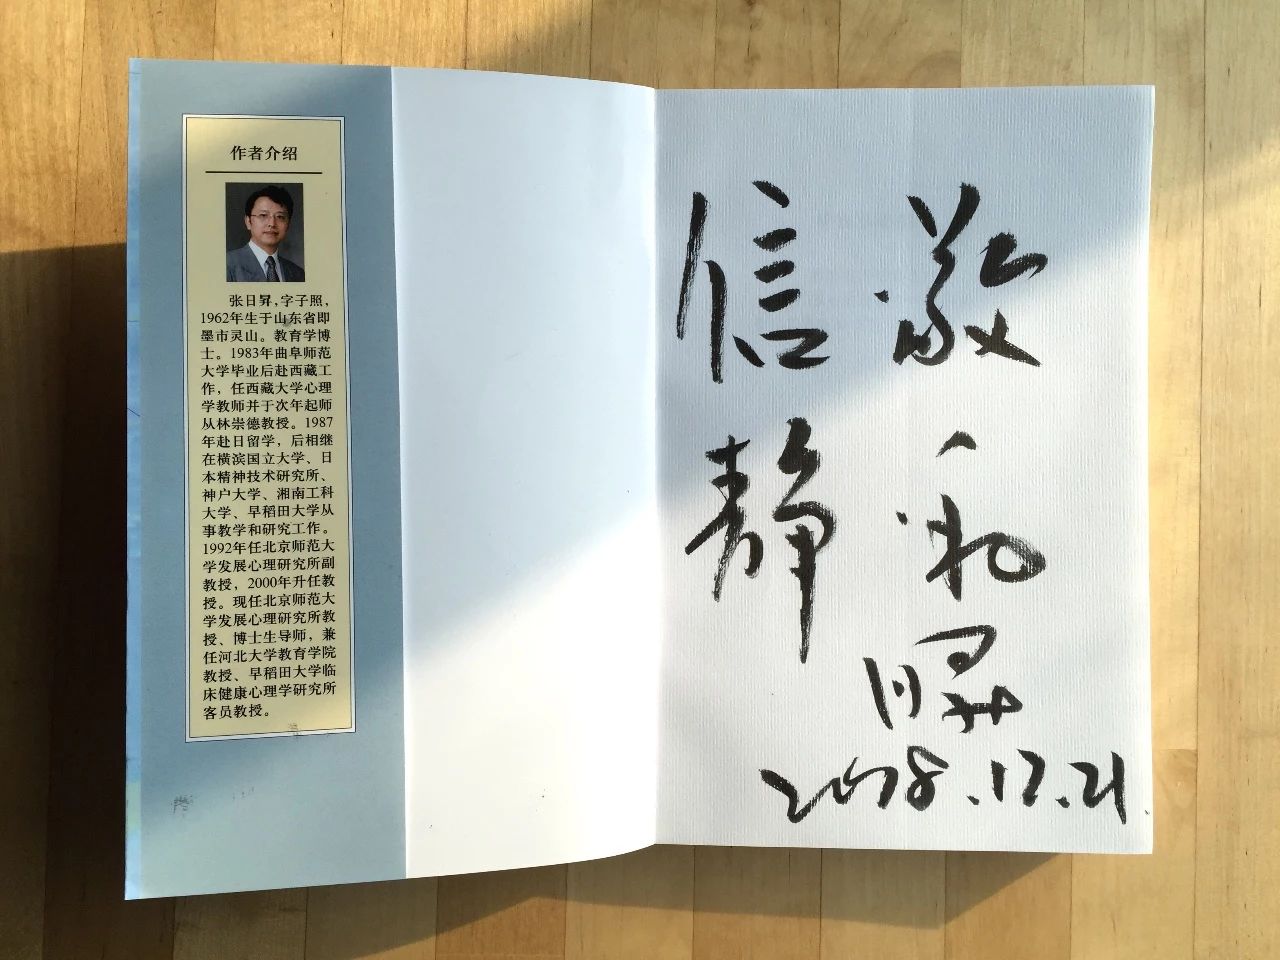 作者介绍
张日昇,字子照,
1962年生于山东省即
墨市灵山。教育学博
士。1983年曲阜师范
大学毕业后赴西藏工
作，任西藏大学心理
学教师并于次年起师
从林崇德教授。1987
年赴日留学，后相继
在横滨国立大学、日
本精神技术研究所、
神户大学、湘南工科
大学、早稻田大学从
事教学和研究工作。
1992年任北京师范大
学发展心理研究所副
教授，2000年升任教
授。现任北京师范大
学发展心理研究所教
授、博士生导师，兼
任河北大学教育学院
教授、早稻田大学临
床健康心理学研究所
客员教授。
敬
信静
2018.12.21